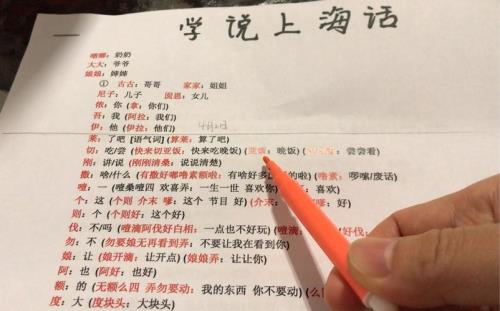 学说上海话
嗯娜：奶奶
大大：爷爷
娘娘：婶婶
① 古古：哥哥 家家：姐姐
尼子：儿子 囡恩：女儿
侬：你（拿：你们）
吾：我（阿拉：我们）
伊：他（伊拉：他们）
莱：了吧 [语气词]（算莱：算了吧）
切：吃/尝（快来切亚饭：快来吃晚饭）（亚饭：晚饭）（ 尝尝看）
刚：讲/说（刚刚清桑：说说清楚）
撒：啥/什么（有撒好嘟噜素额啦：有啥好多 的啦）（噜素：啰嗦/废话）
噎：一（噎桑噎四 欢喜弄：一生一世 喜欢你） ：喜欢）
个：这（个则 介末 嗲：这个 节目 好）（介末： 嗲：好）
则：个（个则好：这个好）
伐：不/吗（噎滴阿伐好白相：一点也不好玩）（噎滴 好伐：
勿：不（勿要娘无再看到弄：不要让我在看到你）
娘：让（娘开滴：让开点）（娘娘弄：让让你）
阿：也（阿好：也好）
额：的（无额么四 弄勿要动：我的东西 你不要动）（么
度：大（度块头：大块头）